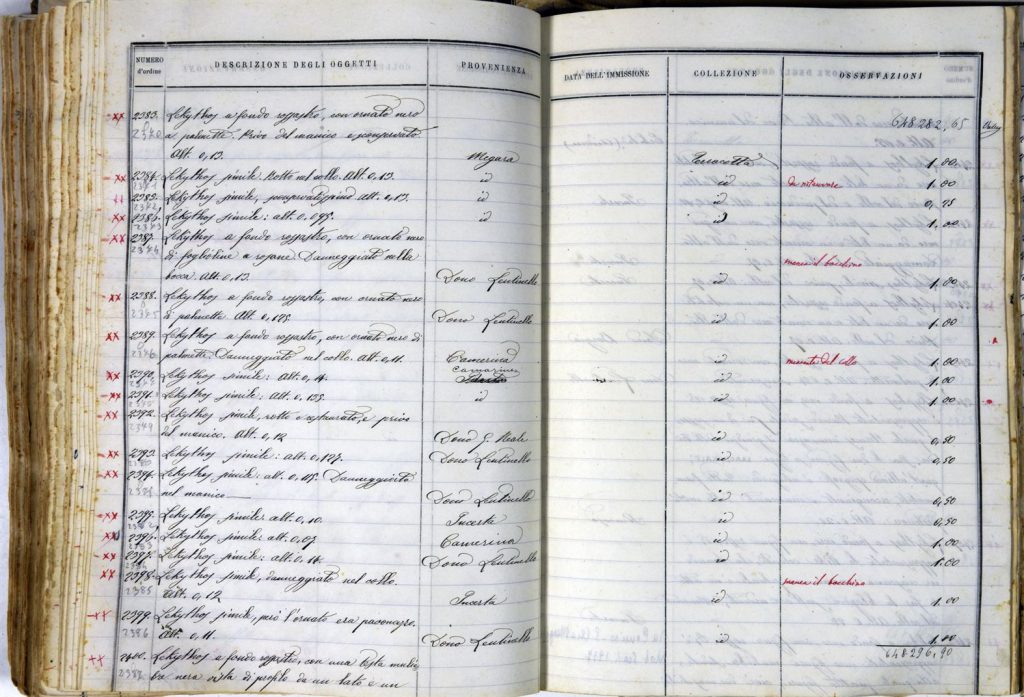 NUMERO d'ordine DESCRIZIONE DEGLI OGGETTI PROVENIENZA DATA DELL'IMMISSIONE COLLEZIONE OSSERVAZIONI
648282,65
xx 2383. Lekythos a fondo rossastro, con ornato nero
a palmette. Privo del manico e
Alt. 0,13. Megara Terracotta 1.00
xx 2384. Lekythos simile. Rotto nel collo. Alt. 0,13. id id da restaurare 1.00
2385. Lekythos simile, conservatissimo alt. 0,13. id id
xx 2386. Lekythos simile: alt. 0,095. id id 1,00
xx 2387. Lekythos a fondo rossastro, con ornato nero
di foglioline a Danneggiato nella manca il bocchino
bocca. Alt. 0,13. Dono Lentinello id 1.00
xx 2388. Lekythos a fondo rossastro, con ornato nero
di palmette. Alt. 0,125. Dono Lentinello id 1.00
xx 2389. Lekythos a fondo rossastro, con ornato nero di
palmette. Danneggiato nel collo. Alt. 0,11. Camerina id del collo 1.00
xx 2390. Lekythos simile: Alt. 0,14. Camarina id 1.00
xx 2391. Lekythos simile: Alt. 0,135. id id 1.00
xx 2392. Lekythos simile, rotto e restaurato, e privo
del manico. Alt. 0,12 Dono G. Reale id 0,50
xx 2393. Lekythos simile: alt. 0,127. Dono Lentinello id 0,50
xx 2394. Lekythos simile: alt. 0,115. Danneggiato
nel manico Dono Lentinello id 0,50
xx 2395. Lekythos simile: alt. 0,10. Incerta id 0,50
xx 2396. Lekythos simile: alt. 0,07 Camerina id 1.00
xx 2397. Lekythos simile: alt. 0,14 Dono Lentinello id 1.00
xx 2398. Lekythos simile, danneggiato nel collo. manca il bocchino
Alt. 0,12 Incerta id 1.00
xx 2399. Lekythos simile, però l'ornato era paonazzo.
Alt. 0,11. Dono Lentinello id 1.00
648296,90
xx 2400. Lekythos a fondo rossastro, con una testa
nera vista di profilo da un lato e un